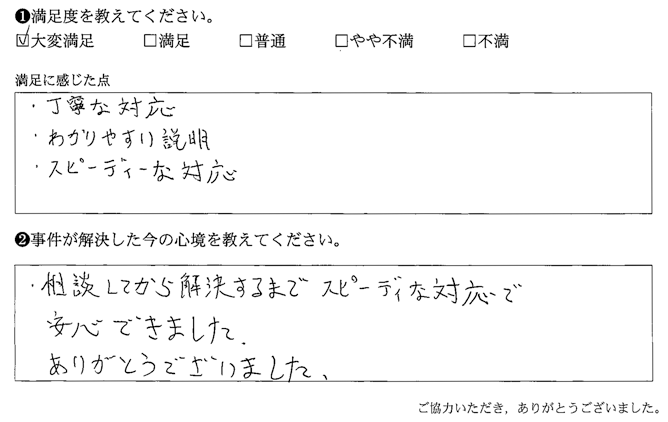 ❶満足度を教えてください。
☑大変満足 □満足 □普通 □やや不満 □不満
満足に感じた点
・丁寧な対応
・わかりやすい説明
・スピーディーな対応
❷事件が解決した今の心境を教えてください。
・相談してから解決するまでスピーディな対応で
安心できました.
ありがとうございました、
ご協力いただき，ありがとうございました。